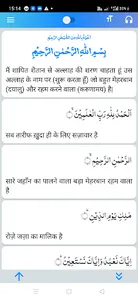 15:14
اَعُوْذُ بِاللّٰهِ مِنَ الشَّيْطٰنِ الرَّجِيْمِ
بِسْمِ اللّٰهِ الرَّحْمٰنِ الرَّحِيْمِ
मैं शापित शैतान से अल्लाह की शरण चाहता हूं उस
अल्लाह के नाम पर (शुरू करता हूँ) जो बहुत मेहरबान
(दयालु) और रहम करने वाला (करुणामय) है।
اَلْحَمْدُ لِلّٰهِ رَبِّ الْعٰلَمِيْنَ
सब तारीफ ख़ुदा ही के लिए सज़ावार है
الرَّحْمٰنِ الرَّحِيْمِ
सारे जहाँन का पालने वाला बड़ा मेहरबान रहम वाला
है
مٰلِكِ يَوْمِ الدِّيْنِ
रोज़े जज़ा का मालिक है
اِيَّاكَ نَعْبُدُ وَاِيَّاكَ نَسْتَعِيْنُ